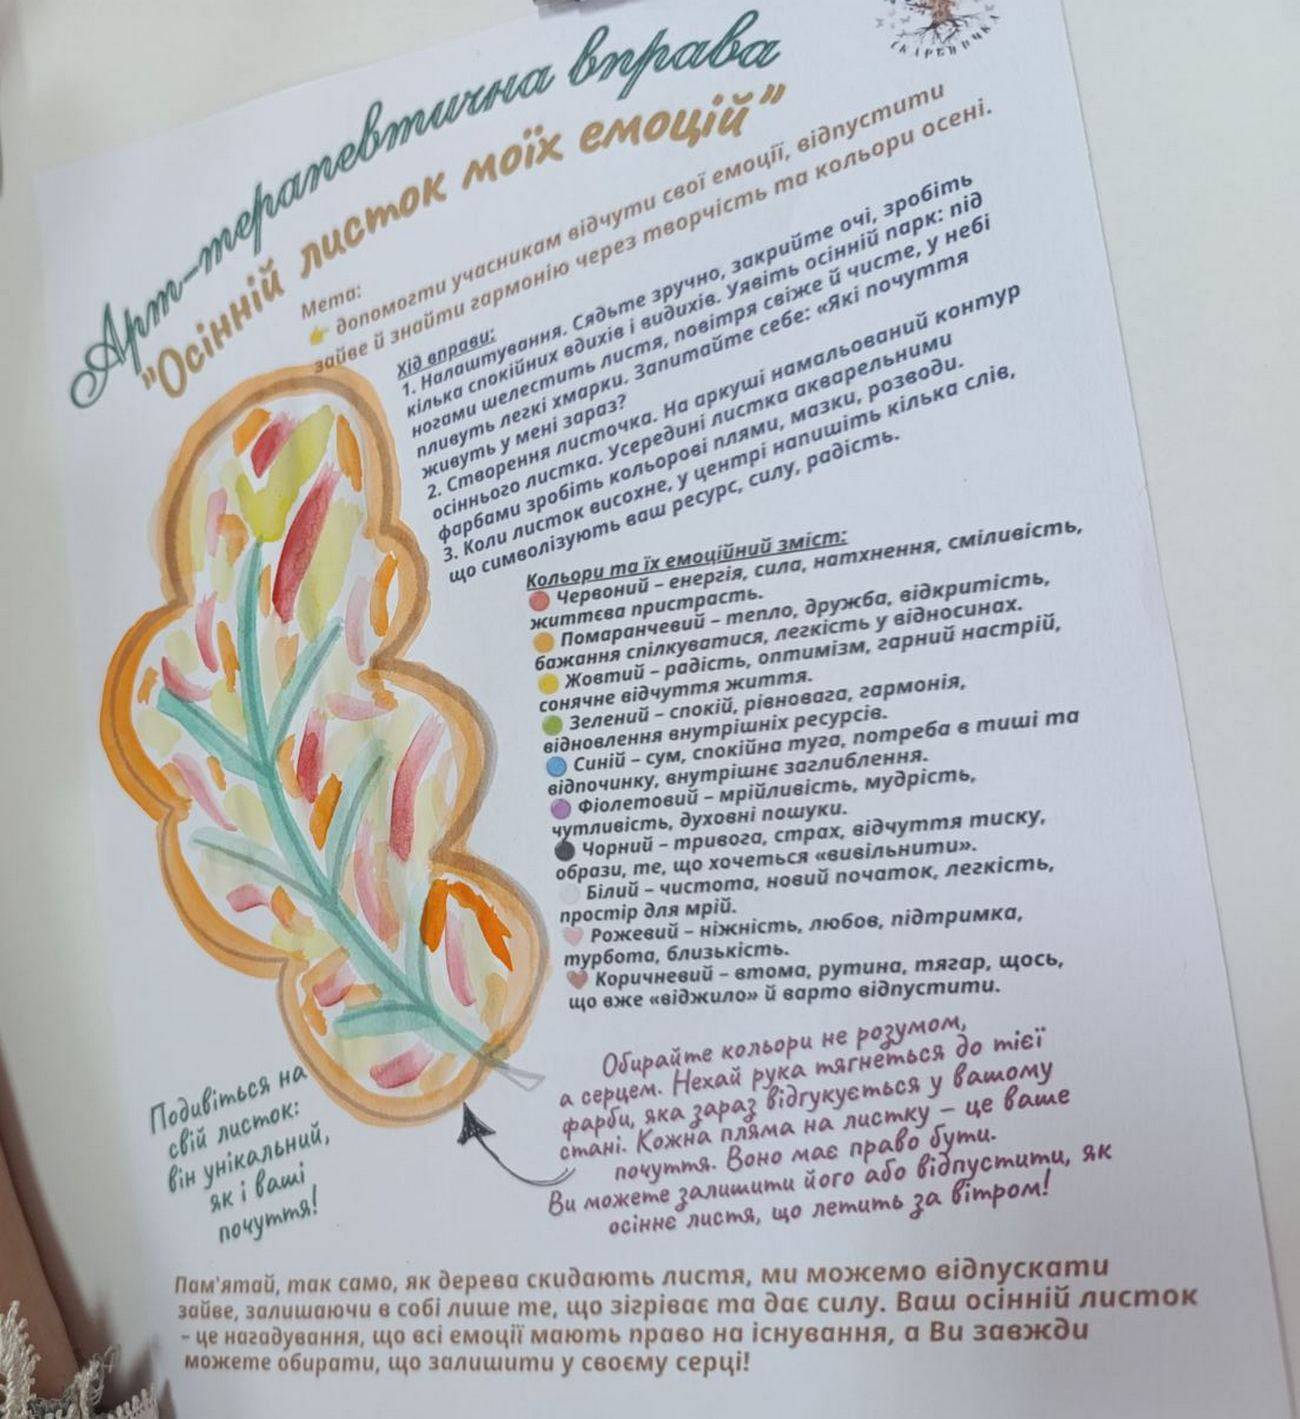 СКАРБНИЧКА
Арт-терапевтична вправа
"Осінній листок моїх емоцій"
Мета:
👉 допомогти учасникам відчути свої емоції, відпустити
зайве й знайти гармонію через творчість та кольори осені.
Хід вправи:
1. Налаштування. Сядьте зручно, закрийте очі, зробіть
кілька спокійних вдихів і видихів. Уявіть осінній парк: під
ногами шелестить листя, повітря свіже й чисте, у небі
пливуть легкі хмарки. Запитайте себе: «Які почуття
живуть у мені зараз?
2. Створення листочка. На аркуші намальований контур
осіннього листка. Усередині листка акварельними
фарбами зробіть кольорові плями, мазки, розводи.
3. Коли листок висохне, у центрі напишіть кілька слів,
що символізують ваш ресурс, силу, радість.
Кольори та їх емоційний зміст:
🔴 Червоний – енергія, сила, натхнення, сміливість,
життєва пристрасть.
🟠 Помаранчевий – тепло, дружба, відкритість,
бажання спілкуватися, легкість у відносинах.
🟡 Жовтий – радість, оптимізм, гарний настрій,
сонячне відчуття життя.
🟢 Зелений – спокій, рівновага, гармонія,
відновлення внутрішніх ресурсів.
🔵 Синій – сум, спокійна туга, потреба в тиші та
відпочинку, внутрішнє заглиблення.
🟣 Фіолетовий – мрійливість, мудрість,
чутливість, духовні пошуки.
⚫ Чорний – тривога, страх, відчуття тиску,
образи, те, що хочеться «вивільнити».
⚪ Білий – чистота, новий початок, легкість,
простір для мрій.
🩷 Рожевий – ніжність, любов, підтримка,
турбота, близькість.
🤎 Коричневий – втома, рутина, тягар, щось,
що вже «віджило» й варто відпустити.
Обирайте кольори не розумом,
а серцем. Нехай рука тягнеться до тієї
фарби, яка зараз відгукується у вашому
стані. Кожна пляма на листку – це ваше
почуття. Воно має право бути.
Ви можете залишити його або відпустити, як
осіннє листя, що летить за вітром!
Подивіться на
свій листок:
він унікальний,
як і ваші
почуття!
Пам'ятай, так само, як дерева скидають листя, ми можемо відпускати
зайве, залишаючи в собі лише те, що зігріває та дає силу. Ваш осінній листок
– це нагадування, що всі емоції мають право на існування, а Ви завжди
можете обирати, що залишити у своєму серці!